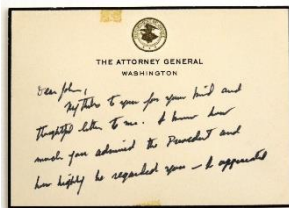 THE ATTORNEY GENERAL
WASHINGTON
Dear John,
My thanks to you for your kind and
thoughtful letter to me. I know how
much you admired the President and
how highly he regarded you - I appreciated